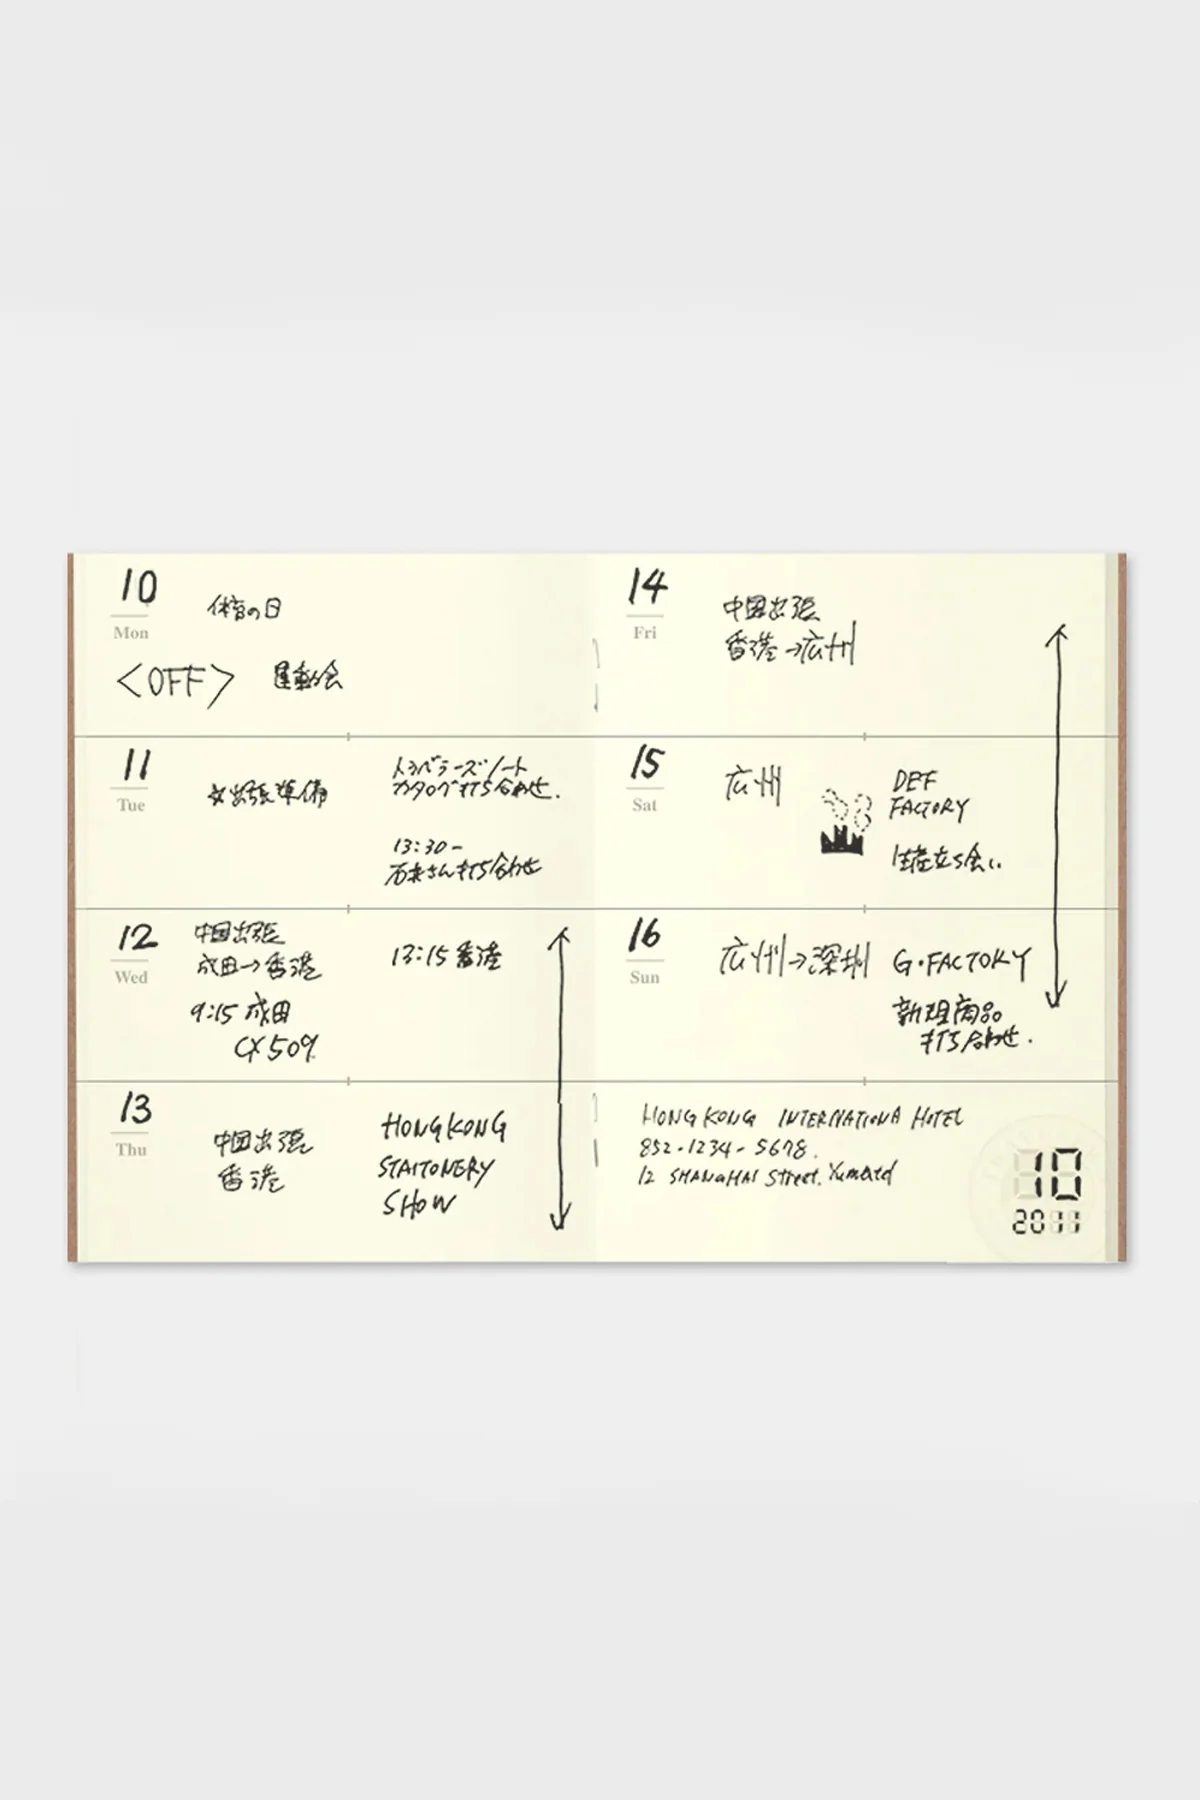 10
Mon
体育の日
<OFF> 運動会
11
Tue
出張準備
トラベラーズノート
カタログ打ち合わせ.
13:30-
石井さん打ち合わせ
12
Wed
中国出張
成田→香港
9:15 成田
CX509
13:15 香港
13
Thu
中国出張
香港
HONG KONG
STAITONERY
SHOW
14
Fri
中国出張
香港→広州
15
Sat
広州
DEF
FACTORY
生産立ち会い
16
Sun
広州→深圳
G・FACTORY
新規商品
打ち合わせ.
HONG KONG INTERNATIONA HOTEL
852-1234-5678.
12 SHANGHAI Street.
10
2011